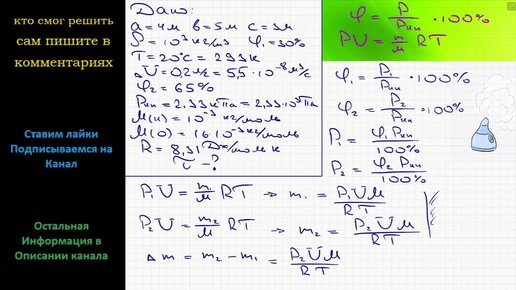 кто смог решить
сам пишите в
комментариях
Ставим лайки
Подписываемся на
Канал
Остальная
Информация в
Описании канала
Дано:
a = 4м b = 5м c = 3м
ρ = 10³ кг/м³ φ₁ = 30%
T = 20°C = 293К
ΔU = 0,2 л/ч = 5,5 · 10⁻⁸ м³/с
φ₂ = 65%
Pнп = 2,33 кПа = 2,33 · 10³ Па
M(H) = 10⁻³ кг/моль
M(O) = 16 · 10⁻³ кг/моль
R = 8,31 Дж/моль К
τ - ?
φ = P/Pнп · 100%
PU = m/M RT
φ₁ = P₁/Pнп · 100%
φ₂ = P₂/Pнп · 100%
P₁ = φ₁ Pнп/100%
P₂ = φ₂ Pнп/100%
P₁U = m₁/M RT → m₁ = P₁UM/RT
P₂U = m₂/M RT → m₂ = P₂UM/RT
Δm = m₂ - m₁ = P₂UM/RT